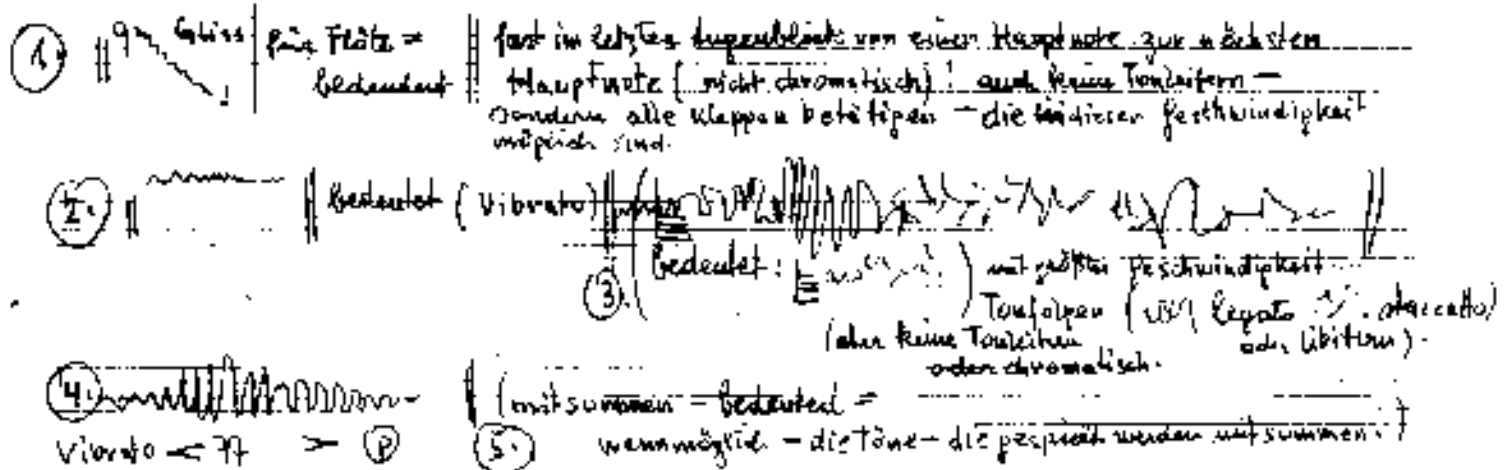 1. Gliss für Flöte = fast im letzten Augenblick von einer Hauptnote zur nächsten
bedeutet Hauptnote (nicht chromatisch)! auch keine Tonleitern –
sondern alle Klappen betätigen – die in dieser Geschwindigkeit
möglich sind.
2. bedeutet (Vibrato)
3. (bedeutet: ) mit größter Geschwindigkeit
Tonfolgen ( legato staccato
(aber keine Tonreihen oder libitum).
oder chromatisch.
4. (mitsummen – bedeuted =
Vibrato < > p 5. wennmöglich – die Töne – die gespielt werden mitsummen.)